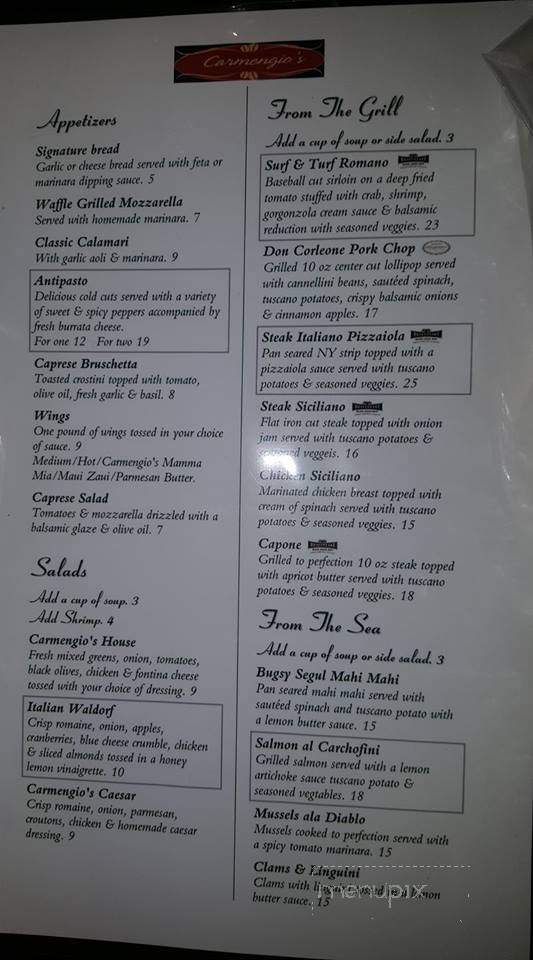 Carmengio's
Appetizers
Signature bread
Garlic or cheese bread served with feta or
marinara dipping sauce. 5
Waffle Grilled Mozzarella
Served with homemade marinara. 7
Classic Calamari
With garlic aoli & marinara. 9
Antipasto
Delicious cold cuts served with a variety
of sweet & spicy peppers accompanied by
fresh burrata cheese.
For one 12 For two 19
Caprese Bruschetta
Toasted crostini topped with tomato,
olive oil, fresh garlic & basil. 8
Wings
One pound of wings tossed in your choice
of sauce. 9
Medium/Hot/Carmengio's Mamma
Mia/Maui Zaui/Parmesan Butter.
Caprese Salad
Tomatoes & mozzarella drizzled with a
balsamic glaze & olive oil. 7
Salads
Add a cup of soup. 3
Add Shrimp. 4
Carmengio's House
Fresh mixed greens, onion, tomatoes,
black olives, chicken & fontina cheese
tossed with your choice of dressing. 9
Italian Waldorf
Crisp romaine, onion, apples,
cranberries, blue cheese crumble, chicken
& sliced almonds tossed in a honey
lemon vinaigrette. 10
Carmengio's Caesar
Crisp romaine, onion, parmesan,
croutons, chicken & homemade caesar
dressing. 9
From The Grill
Add a cup of soup or side salad. 3
Surf & Turf Romano
Baseball cut sirloin on a deep fried
tomato stuffed with crab, shrimp,
gorgonzola cream sauce & balsamic
reduction with seasoned veggies. 23
Don Corleone Pork Chop
Grilled 10 oz center cut lollipop served
with cannellini beans, sautéed spinach,
tuscano potatoes, crispy balsamic onions
& cinnamon apples. 17
Steak Italiano Pizzaiola
Pan seared NY strip topped with a
pizzaiola sauce served with tuscano
potatoes & seasoned veggies. 25
Steak Siciliano
Flat iron cut steak topped with onion
jam served with tuscano potatoes &
seasoned veggeis. 16
Chicken Siciliano
Marinated chicken breast topped with
cream of spinach served with tuscano
potatoes & seasoned veggies. 15
Capone
Grilled to perfection 10 oz steak topped
with apricot butter served with tuscano
potatoes & seasoned veggies. 18
From The Sea
Add a cup of soup or side salad. 3
Bugsy Segul Mahi Mahi
Pan seared mahi mahi served with
sautéed spinach and tuscano potato with
a lemon butter sauce. 15
Salmon al Carchofini
Grilled salmon served with a lemon
artichoke sauce tuscano potato &
seasoned vegtables. 18
Mussels ala Diablo
Mussels cooked to perfection served with
a spicy tomato marinara. 15
Clams & Linguini
Clams with linguini tossed in a lemon
butter sauce. 15
menupix